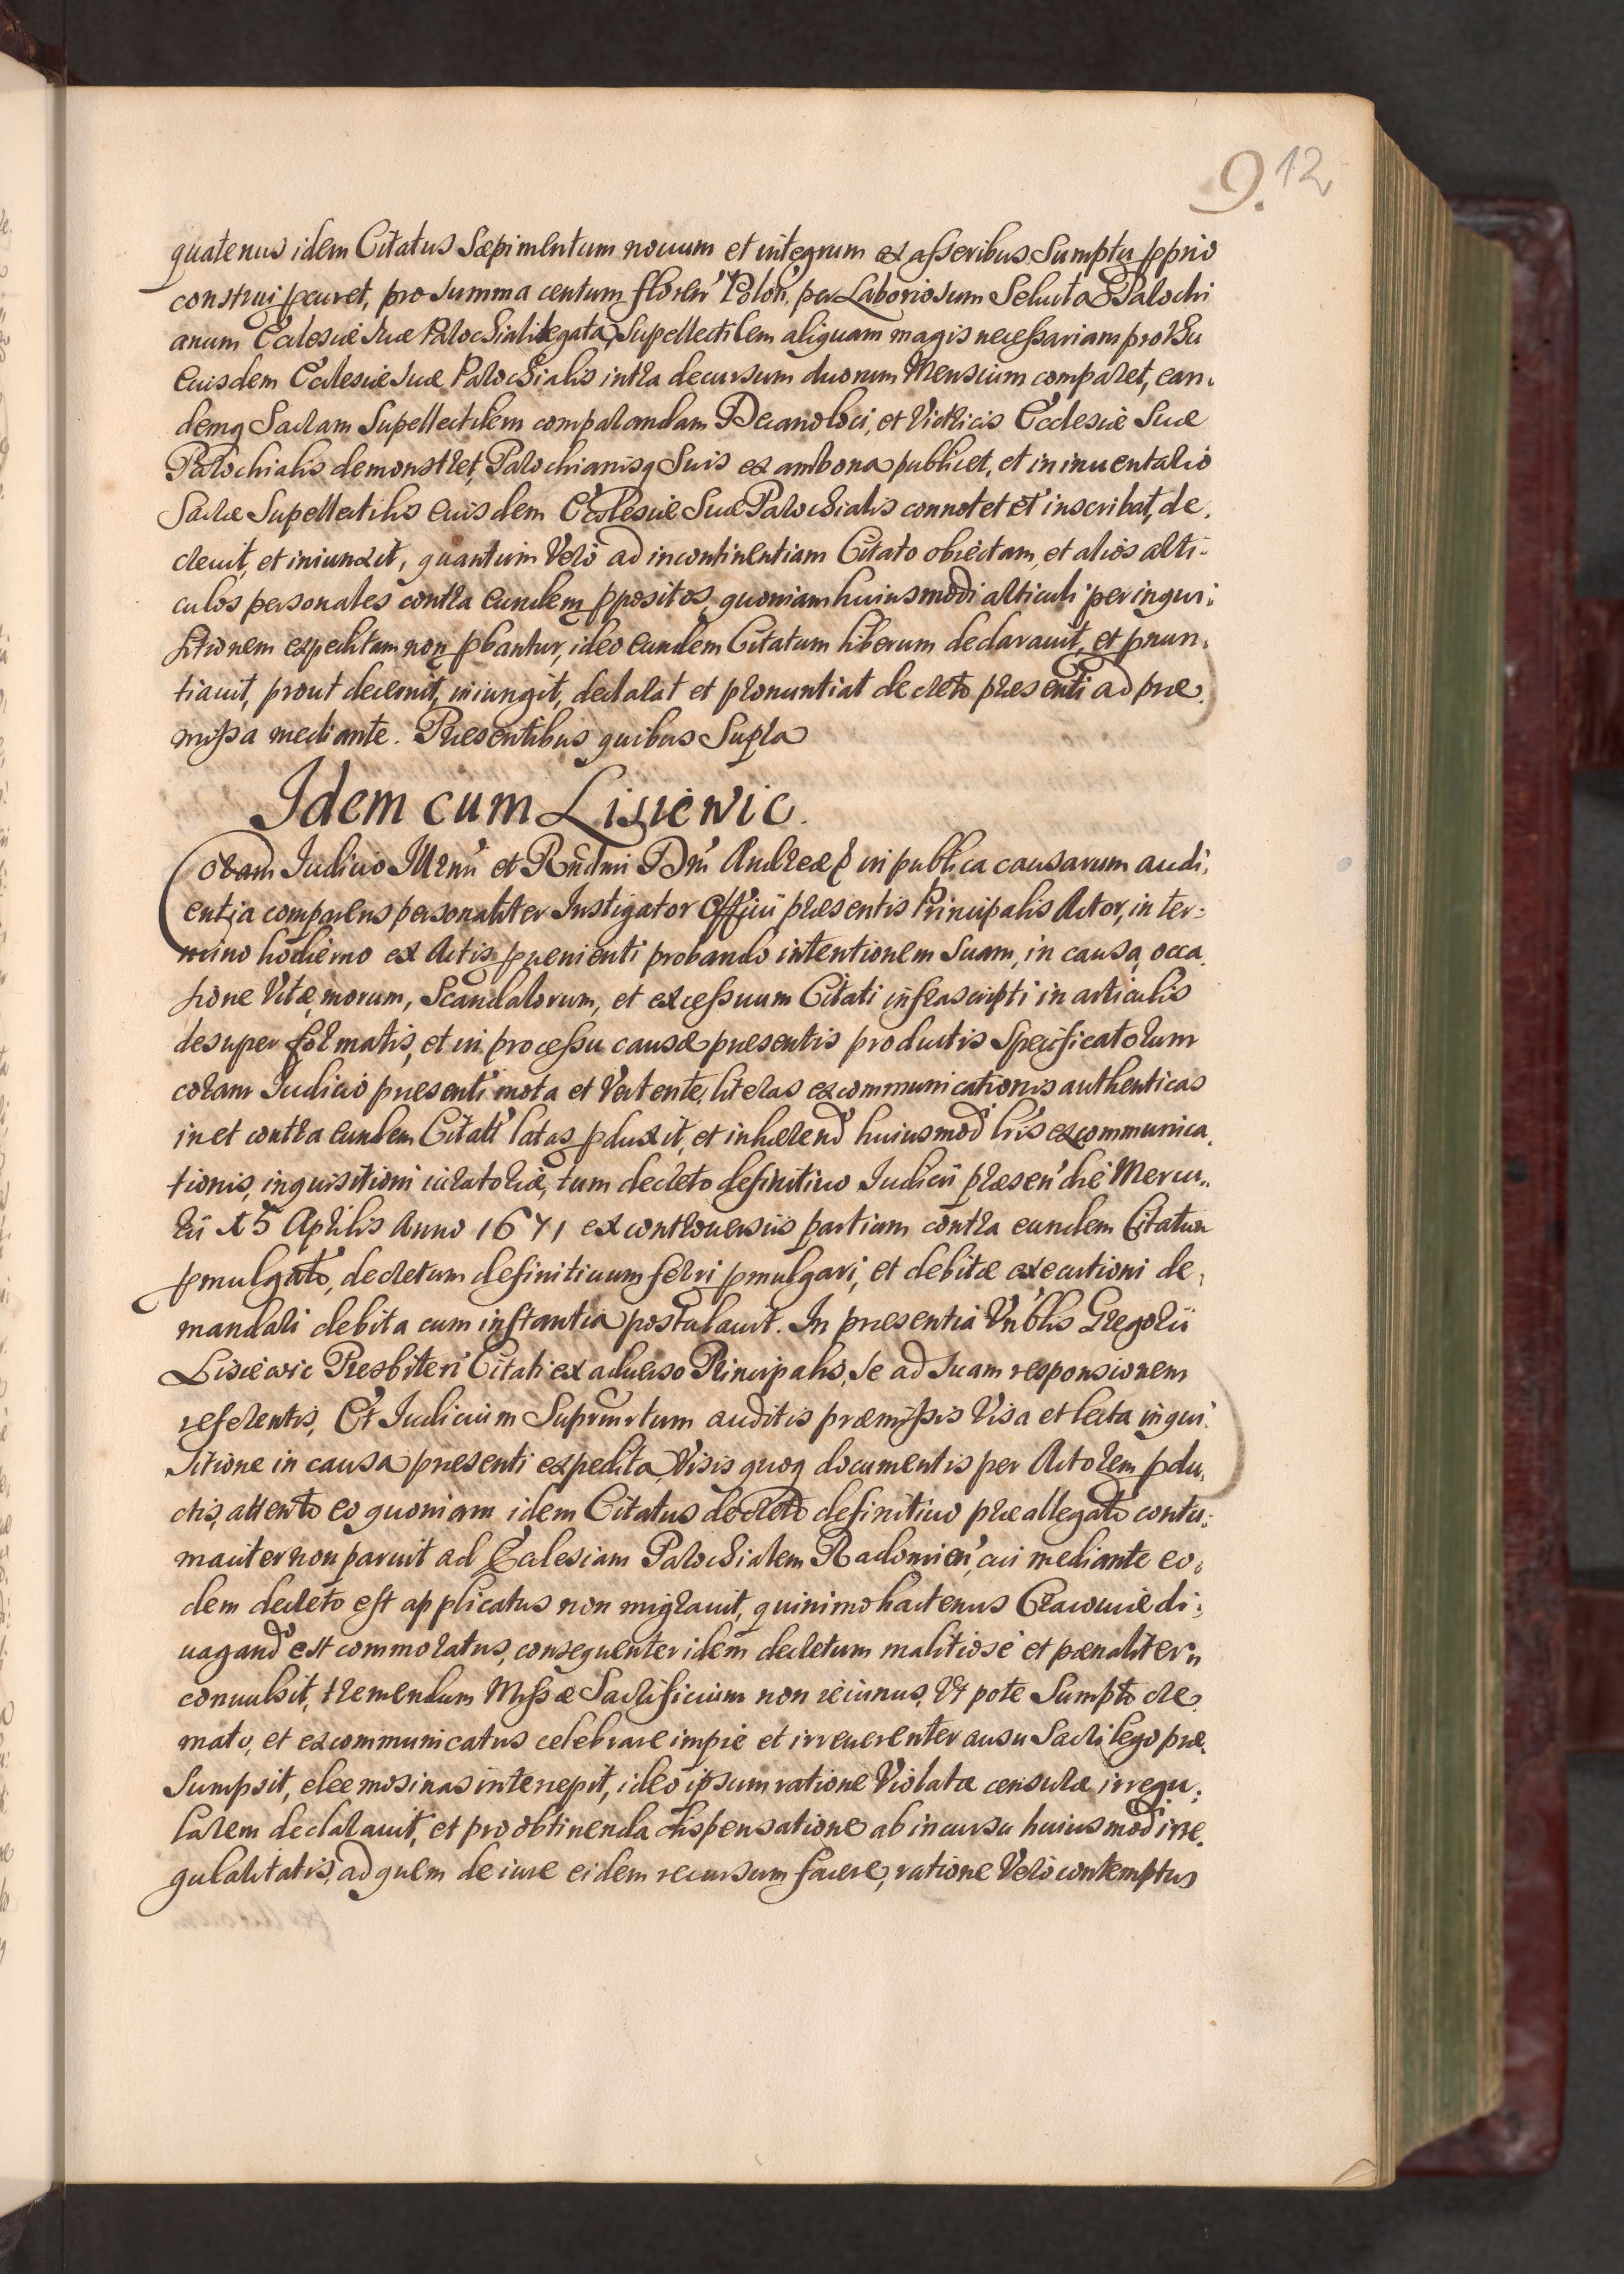 9. 12
quatenus idem Citatus Sæpimentum nouum et integrum ex asseribus Sumptu pprio
construi pcuret, pro summa centum floren' Polon', per Laboriosum Seluta Parochi
anum Ecclesiæ suæ Parochiali legata, Supellectilem aliquam magis necessariam pro Vsu
Eiusdem Ecclesiæ suæ Parochialis intra decursum duorum Mensium comparet, ean-
demq Sacram Supellectilem comparandam Decano loci, et Vitricis Ecclesiæ Suæ
Parochialis demonstret, Parochianisq Suis ex ambona publicet, et in inuentario
Sacræ Supellectilis Eiusdem Ecclesiæ Suæ Parochialis connotet et inscribat, de.
creuit, et iniunxit, quantum Verò ad incontinentiam Citato obiectam, et alios arti-
culos personales contra Eundem ppositos, quoniam huiusmodi articuli per inqui-
sitionem expeditam non pbantur, ideo Eundem Citatum liberum declarauit, et pnun-
tiauit, prout decernit, iniungit, declarat et pronuntiat decreto præsenti ad præ
missa mediante. Præsentibus quibus Supra
Idem cum Lisiewic.
Coram Iudicio Illrmi et Rndmi Dni Andreæ in publica causarum audi-
entia comparens personaliter Instigator Officii præsentis Principalis Actor, in ter-
mino hodierno ex Actis pueniente probando intentionem Suam, in causa, occa
sione Vitæ, morum, Scandalorum, et excessuum Citati infrascripti in articulis
desuper formatis, et in processu causæ præsentis productis Specificatorum
coram Iudicio præsenti mota et Vertente, literas excommunicationis authenticas
in et contra eundem Citatu latas pduxit, et inhærend' huiusmod' lris excommunica
tionis, inquisitioni iuratoriæ, tum decreto definitiuo Iudicii præsen' die Mercu-
rii 15 Aprilis Anno 1671 ex controuersiis partium contra eundem Citatum
pmulgato, decretum definitiuum ferri pmulgari, et debitæ executioni de-
mandari debita cum instantia postulauit. In præsentia Vnblis Gregorii
Lisiewic Presbiteri Citati ex aduerso Principalis, se ad suam responsionem
referentis, Et Iudicium Suprmrtum auditis præmissis Visa et lecta inqui-
sitione in causa præsenti expedita, Visis quoq documentis per Actorem pdu-
ctis, attento eo quoniam idem Citatus decreto definitiuo præallegato contu-
maciter non paruit ad Ecclesiam Parochialem Radomien', cui mediante eo-
dem decreto est applicatus non migrauit, quinimo hactenus Cracouiæ di-
uagand' est commoratus, consequenter idem decretum malitiosè et pœnaliter
conuulsit, tremendum Missæ Sacrificium non ieiunus, Vt pote Sumpto cre
mato, et excommunicatus celebrare impie et irreuerenter ausu Sacrilego præ
sumpsit, eleemosinas intercepit, ideo ipsum ratione Violatæ censuræ irregu-
larem declarauit, et pro obtinenda dispensatione ab incursu huiusmodi irre
gularitatis, ad quem de iure eidem recursum facere, ratione Verò contemptus